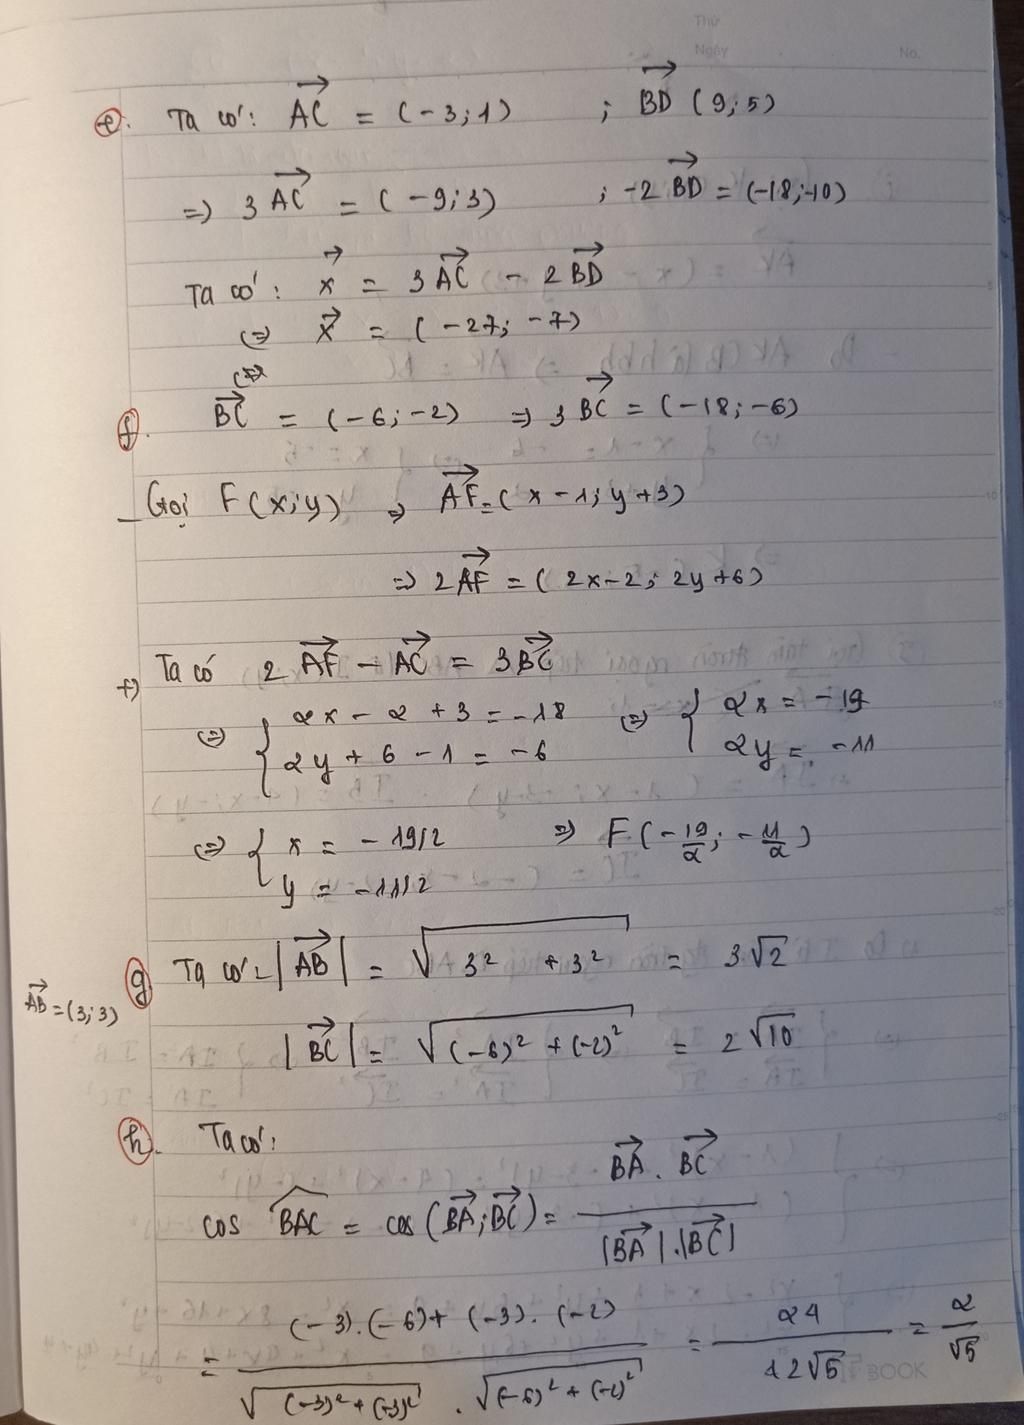 Thứ
Ngày No.
e. Ta có: AC→ = (-3;1) ; BD→ (9;5)
=> 3AC→ = (-9;3) ; -2BD→ = (-18;-10)
Ta có: x→ = 3AC→ - 2BD→
<=> x→ = (-27; -7)
f. BC→ = (-6;-2) => 3BC→ = (-18;-6)
- Gọi F(x;y) => AF→ = (x-1; y+3)
=> 2AF→ = (2x-2; 2y+6)
+) Ta có 2AF→ - AC→ = 3BC→
<=> { 2x - 2 + 3 = -18 <=> { 2x = -19
2y + 6 - 1 = -6 2y = -11
<=> { x = -19/2 => F(-19/2; -11/2)
y = -11/2
g. Ta có: |AB→| = √(3² + 3²) = 3√2
AB→ = (3;3)
|BC→| = √((-6)² + (-2)²) = 2√10
h. Ta có:
cos BAC = cos(BA→;BC→) = BA→ . BC→ / |BA→|.|BC→|
= (-3).(-6) + (-3).(-2) / √((-3)²+(-3)²) . √((-6)²+(-2)²) = 24 / 12√5 = 2/√5
BOOK